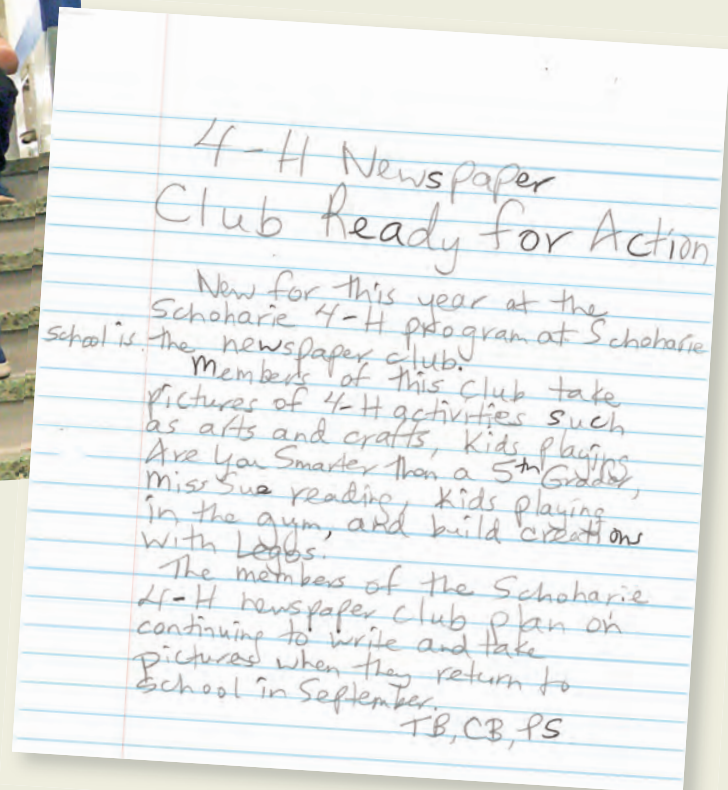 4-H Newspaper
Club Ready for Action
New for this year at the
Schoharie 4-H program at Schoharie
school is the newspaper club.
Members of this club take
pictures of 4-H activities such
as arts and crafts, kids playing
Are You Smarter than a 5th Grader,
Miss Sue reading, kids playing
in the gym, and build creations
with Legos.
The members of the Schoharie
4-H newspaper club plan on
continuing to write and take
pictures when they return to
school in September.
TB, CB, PS